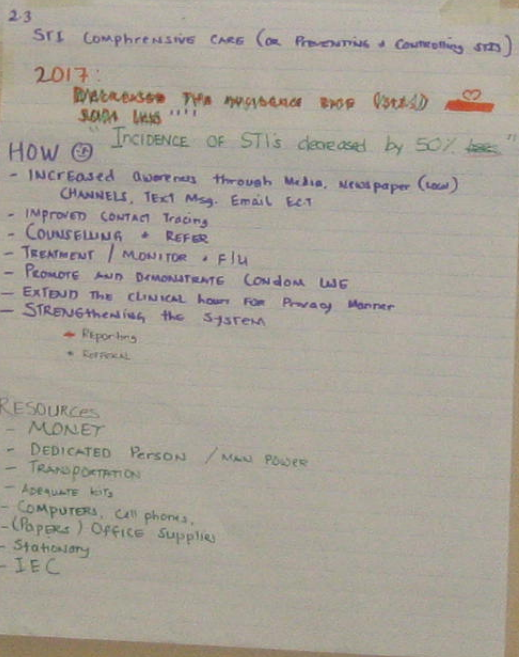 2.3
STI Comphrensive CARE (or Preventing & Controlling STIs)
2017:
" INCIDENCE OF STI's decreased by 50% "
HOW
- INCREASED awareness through Media, Newspaper (Local)
CHANNELS, TExT Msg. Email Ect
- IMPROVED CONTACT Tracing
- COUNSELLING + REFER
- TREATMENT / MONITOR + F/U
- PROMOTE AND DEMONSTRATE CONDOM USE
- EXTEND THE CLINICAL hours FOR Privacy Manner
- STRENGTHENING the System
+ Reporting
+ Referral
RESOURCES
- MONEY
- DEDICATED Person / MAN POWER
- TRANSPORTATION
- ADEQUATE kits
- COMPUTERS, Cell phones,
- (PAPERS) OFFICE Supplies
- Stationary
- IEC